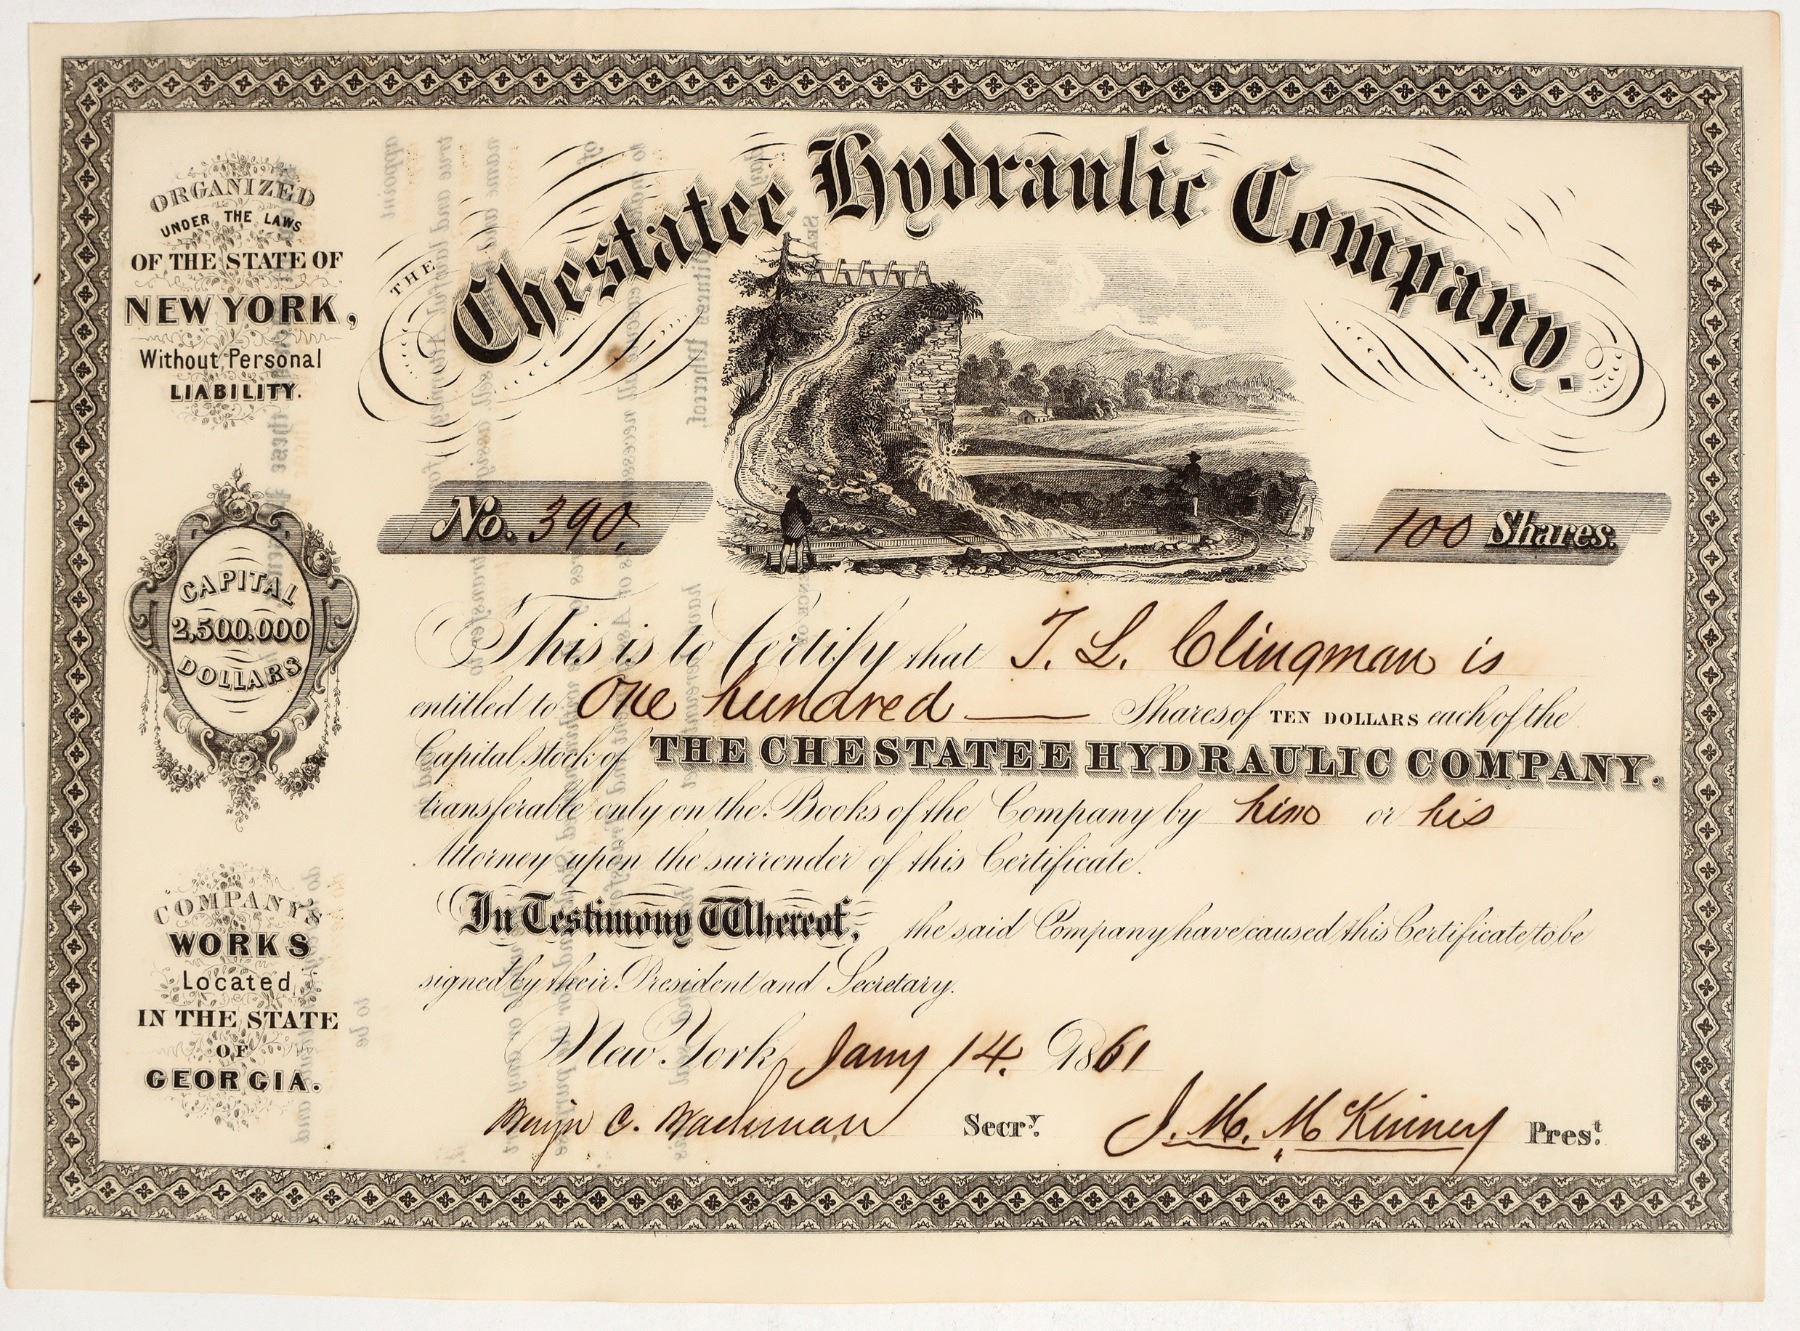 THE Chestatee Hydraulic Company.
ORGANIZED
UNDER THE LAWS
OF THE STATE OF
NEW YORK,
Without Personal
LIABILITY.
No. 390.
100 Shares.
CAPITAL
2,500.000
DOLLARS
This is to Certify that T. L. Clingman is
entitled to One hundred — Shares of TEN DOLLARS each of the
Capital Stock of THE CHESTATEE HYDRAULIC COMPANY.
transferable only on the Books of the Company by him or his
Attorney upon the surrender of this Certificate.
In Testimony Whereof, the said Company have caused this Certificate to be
signed by their President and Secretary.
COMPANY'S
WORKS
Located
IN THE STATE
OF
GEORGIA.
New York, Jany 14. 1861
Benjn C. Wackman Secry. J. M. McKinney Prest.